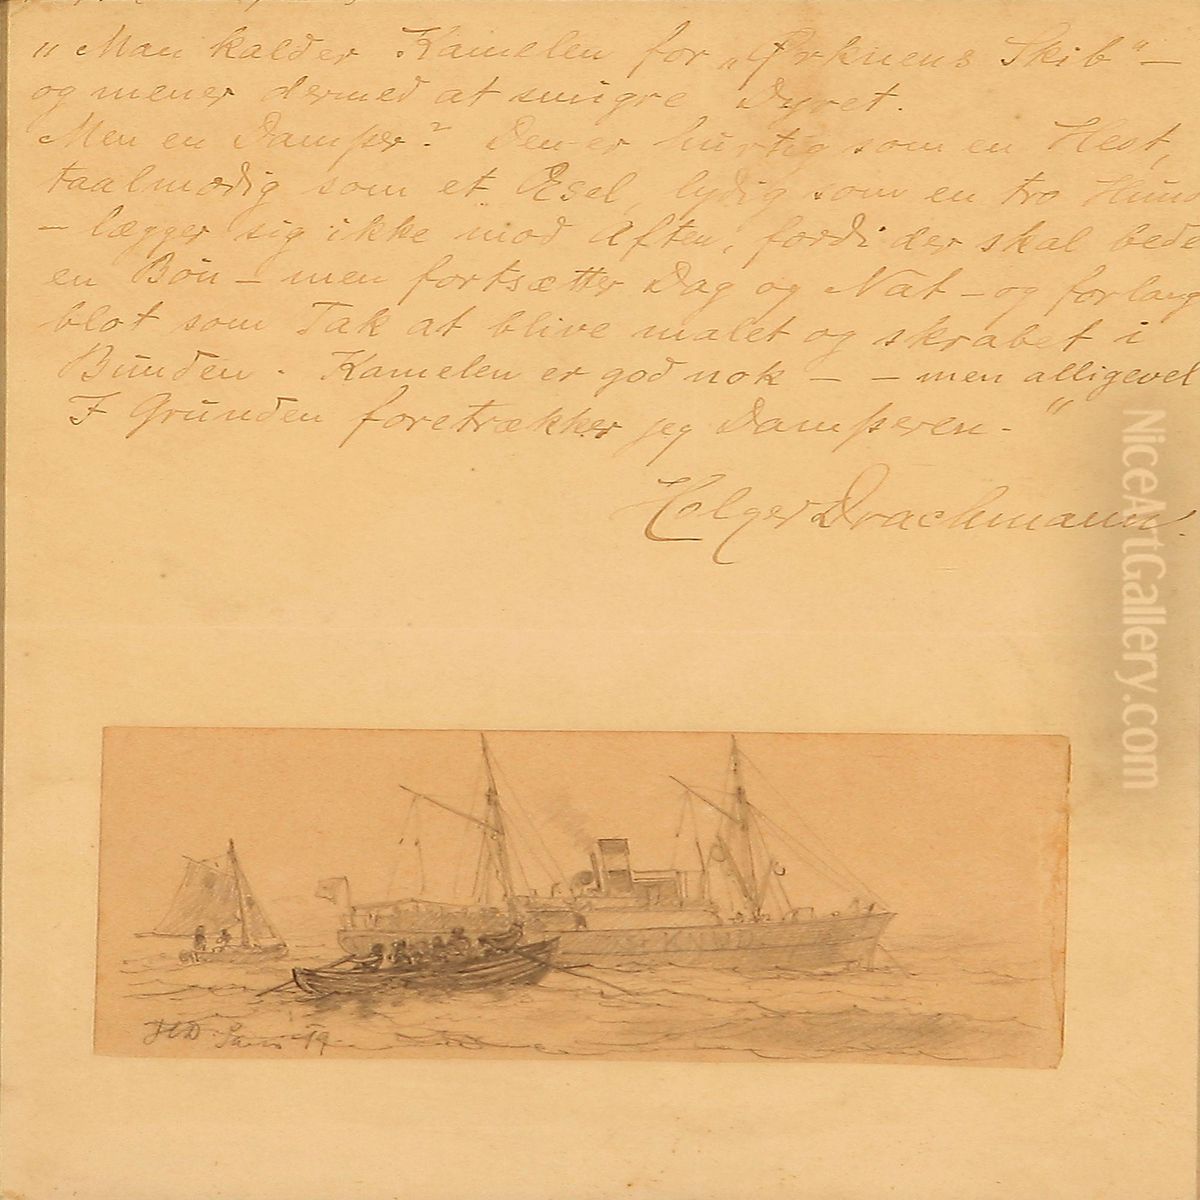 „Man kalder Kamelen for „Ørkenens Skib" –
og mener dermed at smigre Dyret.
Men en Damper? Den er hurtig som en Hest,
taalmodig som et Æsel, lydig som en tro Hun
– lægger sig ikke mod Aften, fordi der skal bede
en Bøn – men fortsætter Dag og Nat – og forlang
blot som Tak at blive malet og skrabet i
Bunden. Kamelen er god nok – – men alligevel
I Grunden foretrækker jeg Damperen. "
Holger Drachmann.
HD.
NiceArtGallery.com